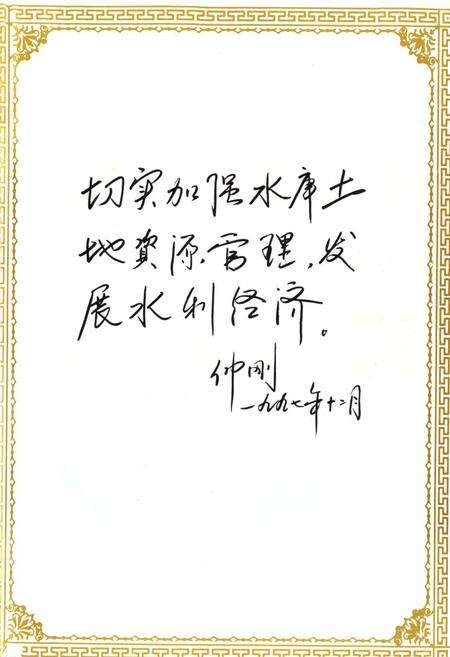 切实加强水库土
地資源管理,发
展水利经济。
仲刚
一九九七年十二月